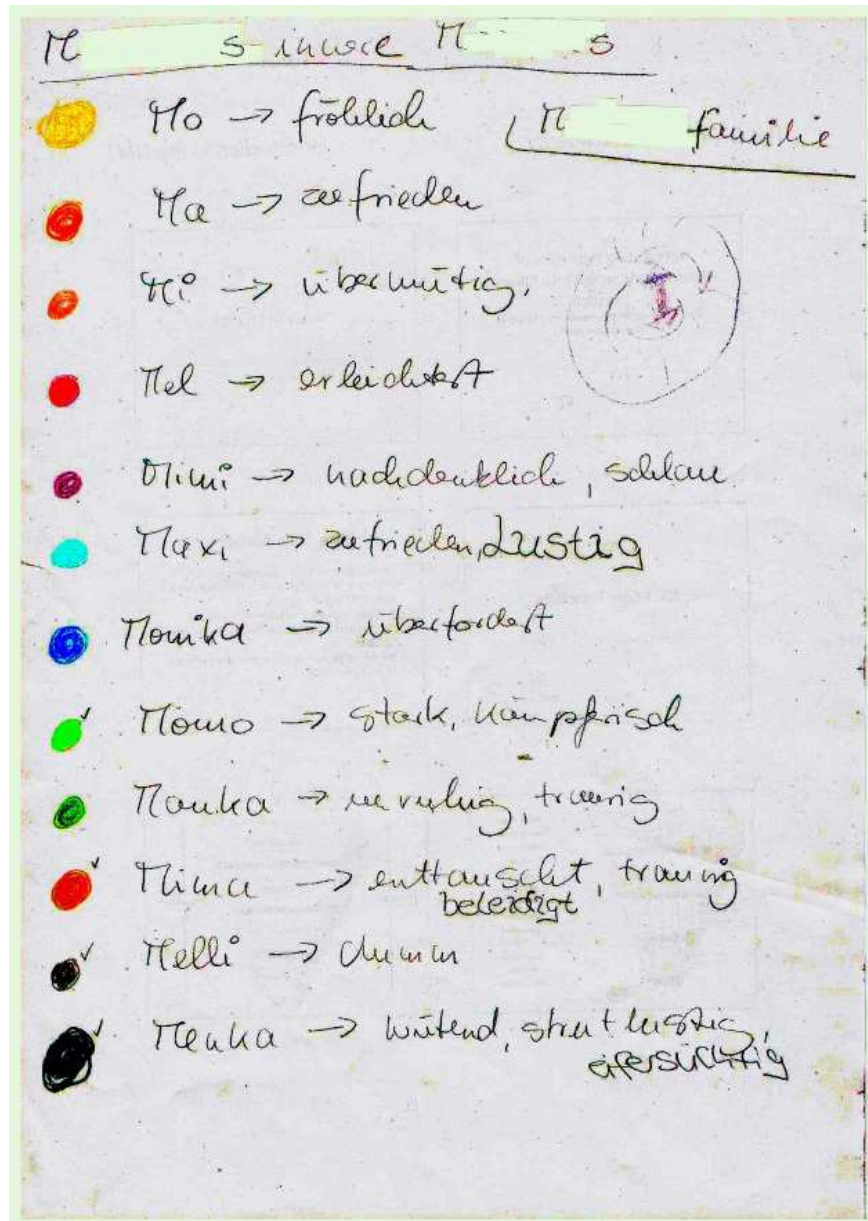 M s innere M s
Mo → fröhlich
M familie
Ma → zufrieden
Mi → übermütig,
Mel → erleichtert
Mimi → nachdenklich, schlau
Maxi → zufrieden, Lustig
Monika → überfordert
Momo → stark, kämpferisch
Monka → unruhig, traurig
Mima → enttäuscht, traurig
beleidigt
Melli → dumm
Menka → wütend, streitlustig,
eifersüchtig